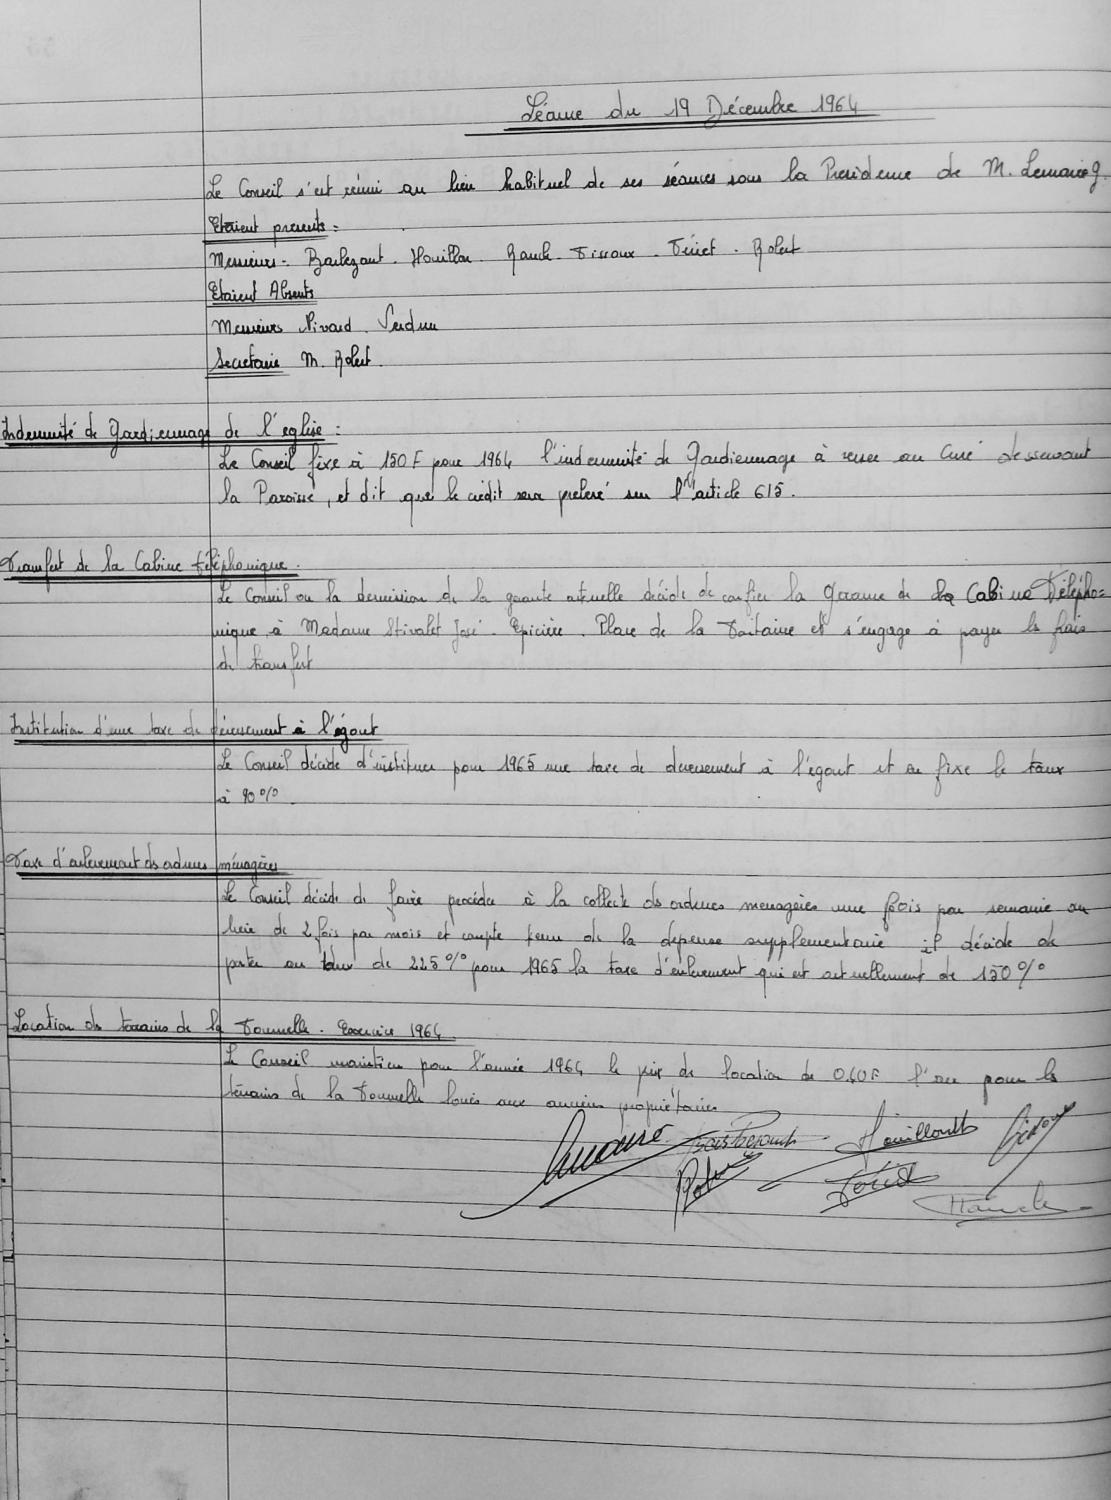 Séance du 19 Décembre 1964
Le Conseil s'est réuni au lieu habituel de ses séances sous la Presidence de M. Lemaire G.
Etaient presents :
Messieurs - Barbezant. Houillon. Hauck. Tissoux. Fériet. Robert
Etaient Absents
Messieurs Nivard. Verdun
Secretaire M. Robert.
Indemnité de Gardiennage de l'eglise :
Le Conseil fixe à 150 F pour 1964 l'indemnité de Gardiennage à verser au Curé desservant
la Paroisse, et dit que le crédit sera prelevé sur l'article 615.
Transfert de la Cabine téléphonique.
Le Conseil vu la demission de la gerante actuelle décide de confier la Gerance de la Cabine Télépho=
nique à Madame Stivalet José. Epicière. Place de la Fontaine et s'engage à payer les frais
de transfert
Institution d'une taxe de déversement à l'égout
Le Conseil décide d'instituer pour 1965 une taxe de deversement à l'égout et en fixe le taux
à 90 %.
Taxe d'enlevement des ordures ménagères
Le Conseil décide de faire procéder à la collecte des ordures menagères une fois par semaine au
lieu de 2 fois par mois et compte tenu de la depense supplementaire il décide de
porter au taux de 225 % pour 1965 la taxe d'enlevement qui est actuellement de 150 %
Location des terrains de la Tournelle. Exercice 1964
Le Conseil maintien pour l'année 1964 le prix de location de 0,40 F l'are pour les
terrains de la Tournelle loués aux anciens propriétaires
Lemaire Houillon
Robert Hauck